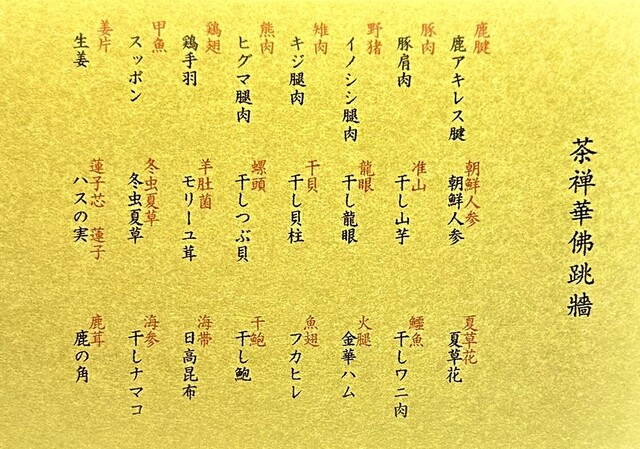 茶禅華佛跳牆
鹿腱
鹿アキレス腱
豚肉
豚肩肉
野猪
イノシシ腿肉
雉肉
キジ腿肉
熊肉
ヒグマ腿肉
鶏翅
鶏手羽
甲魚
スッポン
姜片
生姜
朝鮮人参
朝鮮人参
准山
干し山芋
龍眼
干し龍眼
干貝
干し貝柱
螺頭
干しつぶ貝
羊肚菌
モリーユ茸
冬虫夏草
冬虫夏草
蓮子芯 蓮子
ハスの実
夏草花
夏草花
鱷魚
干しワニ肉
火腿
金華ハム
魚翅
フカヒレ
干鮑
干し鮑
海帯
日高昆布
海参
干しナマコ
鹿茸
鹿の角